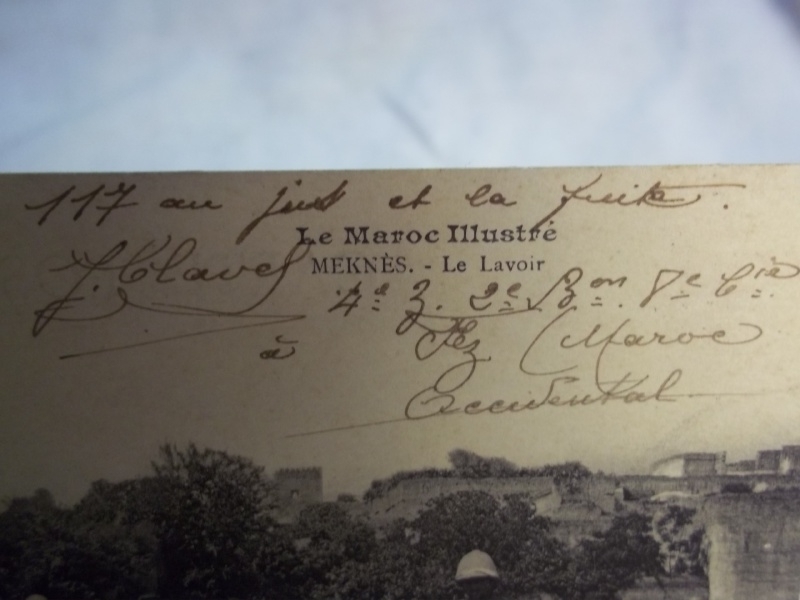 117 au jus et la fuite.
Le Maroc Illustré
MEKNÈS. - Le Lavoir
J. Clavel
4e Z. 2e Bon. 8e Cie
à Fez (Maroc
Occidental